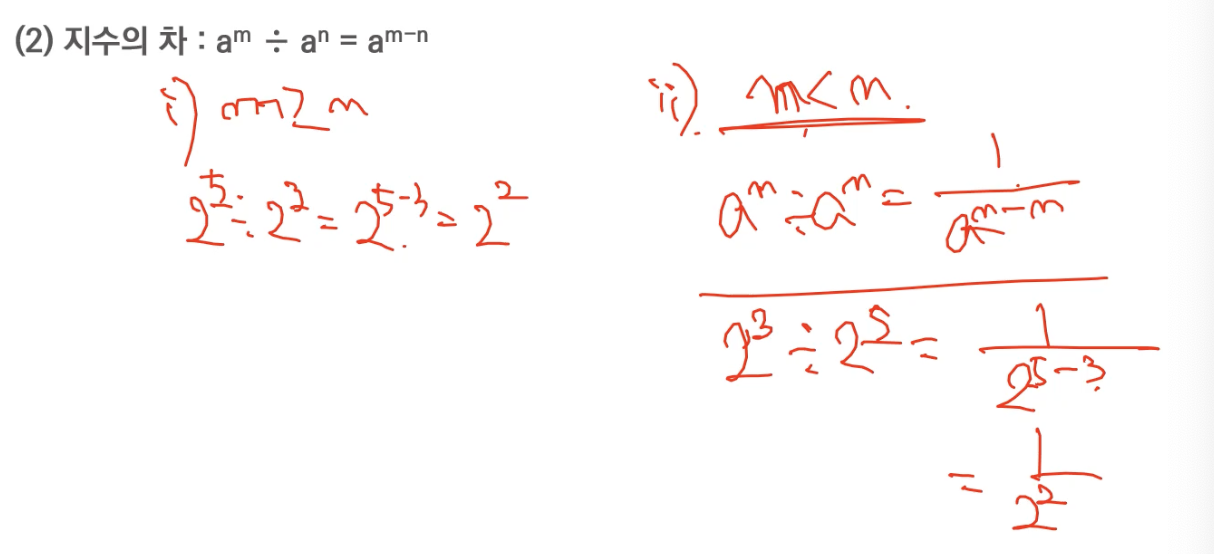 (2) 지수의 차 : aᵐ ÷ aⁿ = aᵐ⁻ⁿ
i) m ≥ n
2⁵ ÷ 2³ = 2⁵⁻³ = 2²
ii). m < n.
aᵐ ÷ aⁿ = 1/aⁿ⁻ᵐ
2³ ÷ 2⁵ = 1/2⁵⁻³
= 1/2²